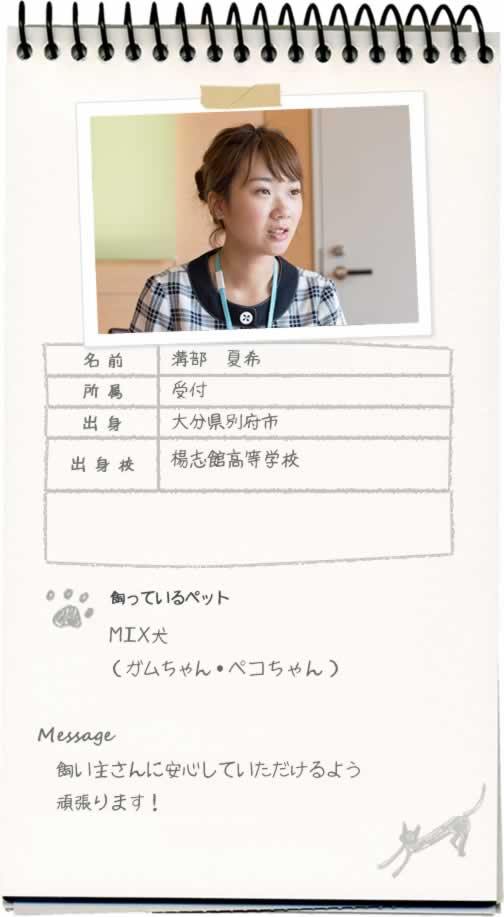 名前 溝部 夏希
所属 受付
出身 大分県別府市
出身校 楊志館高等学校
飼っているペット
MIX犬
(ガムちゃん・ペコちゃん)
Message
飼い主さんに安心していただけるよう
頑張ります!